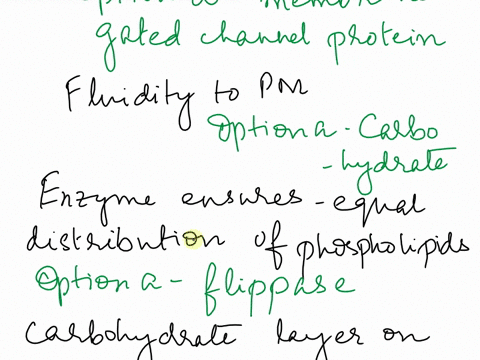 gated channel protein
Fluidity to PM
Option a - Carbo
- hydrate
Enzyme ensures - equal
distribution of phospholipids
Option a - flippase
carbohydrate layer on